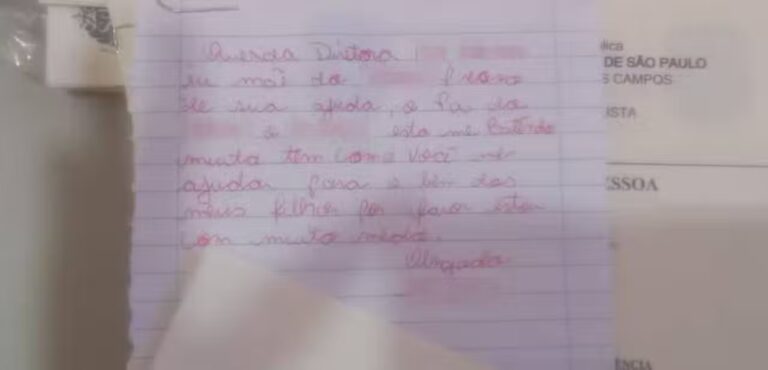 Querida Diretora
eu mãe da preciso
de sua ajuda, o Pai da
e esta me Batendo
muito tem como você me
ajudar para o bem dos
meus filhos por favor estou
com muito medo.
Obrigada
DE SÃO PAULO
S CAMPOS
ISTA
ESSOA
ÊNCIA